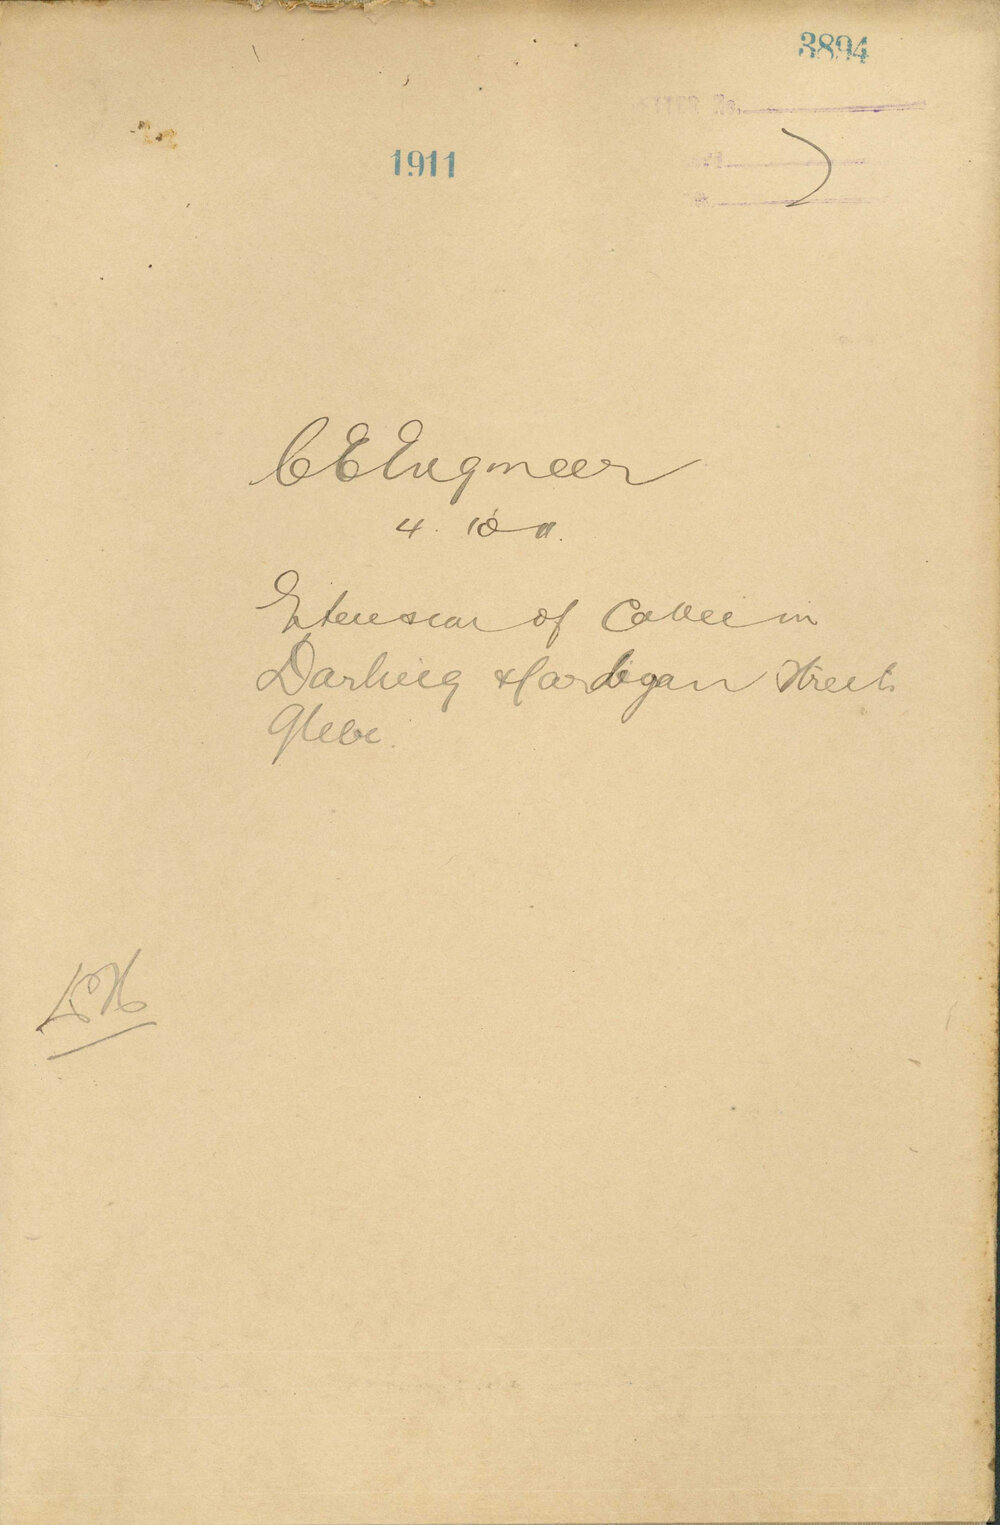 3894
1911
C E Engineer
4. 10 11.
Extension of Cable in
Darling & Cardigan Streets
Glebe.